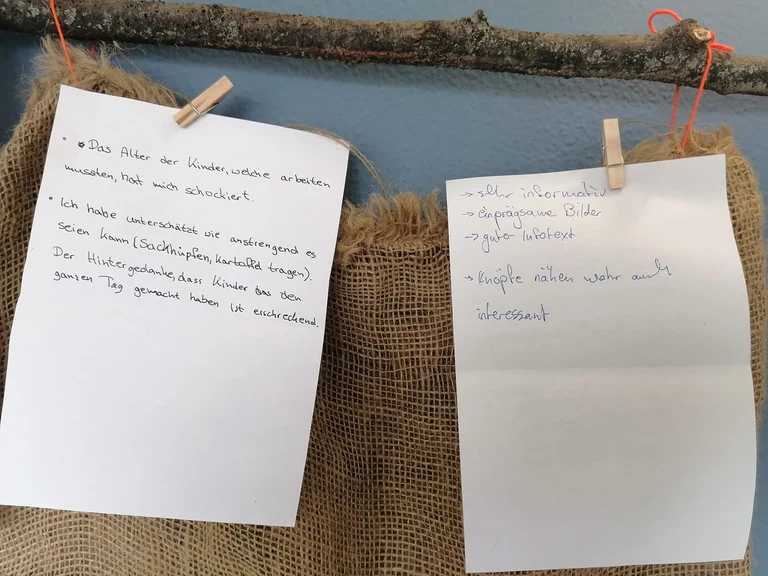 • Das Alter der Kinder, welche arbeiten
mussten, hat mich schockiert.
• Ich habe unterschätzt wie anstrengend es
seien kann (Sackhüpfen, Kartoffel tragen).
Der Hintergedanke, dass Kinder das den
ganzen Tag gemacht haben ist esschreckend.
→ sehr informativ
→ einprägsame Bilder
→ guter Infotext
→ Knöpfe nähen wahr auch
interessant